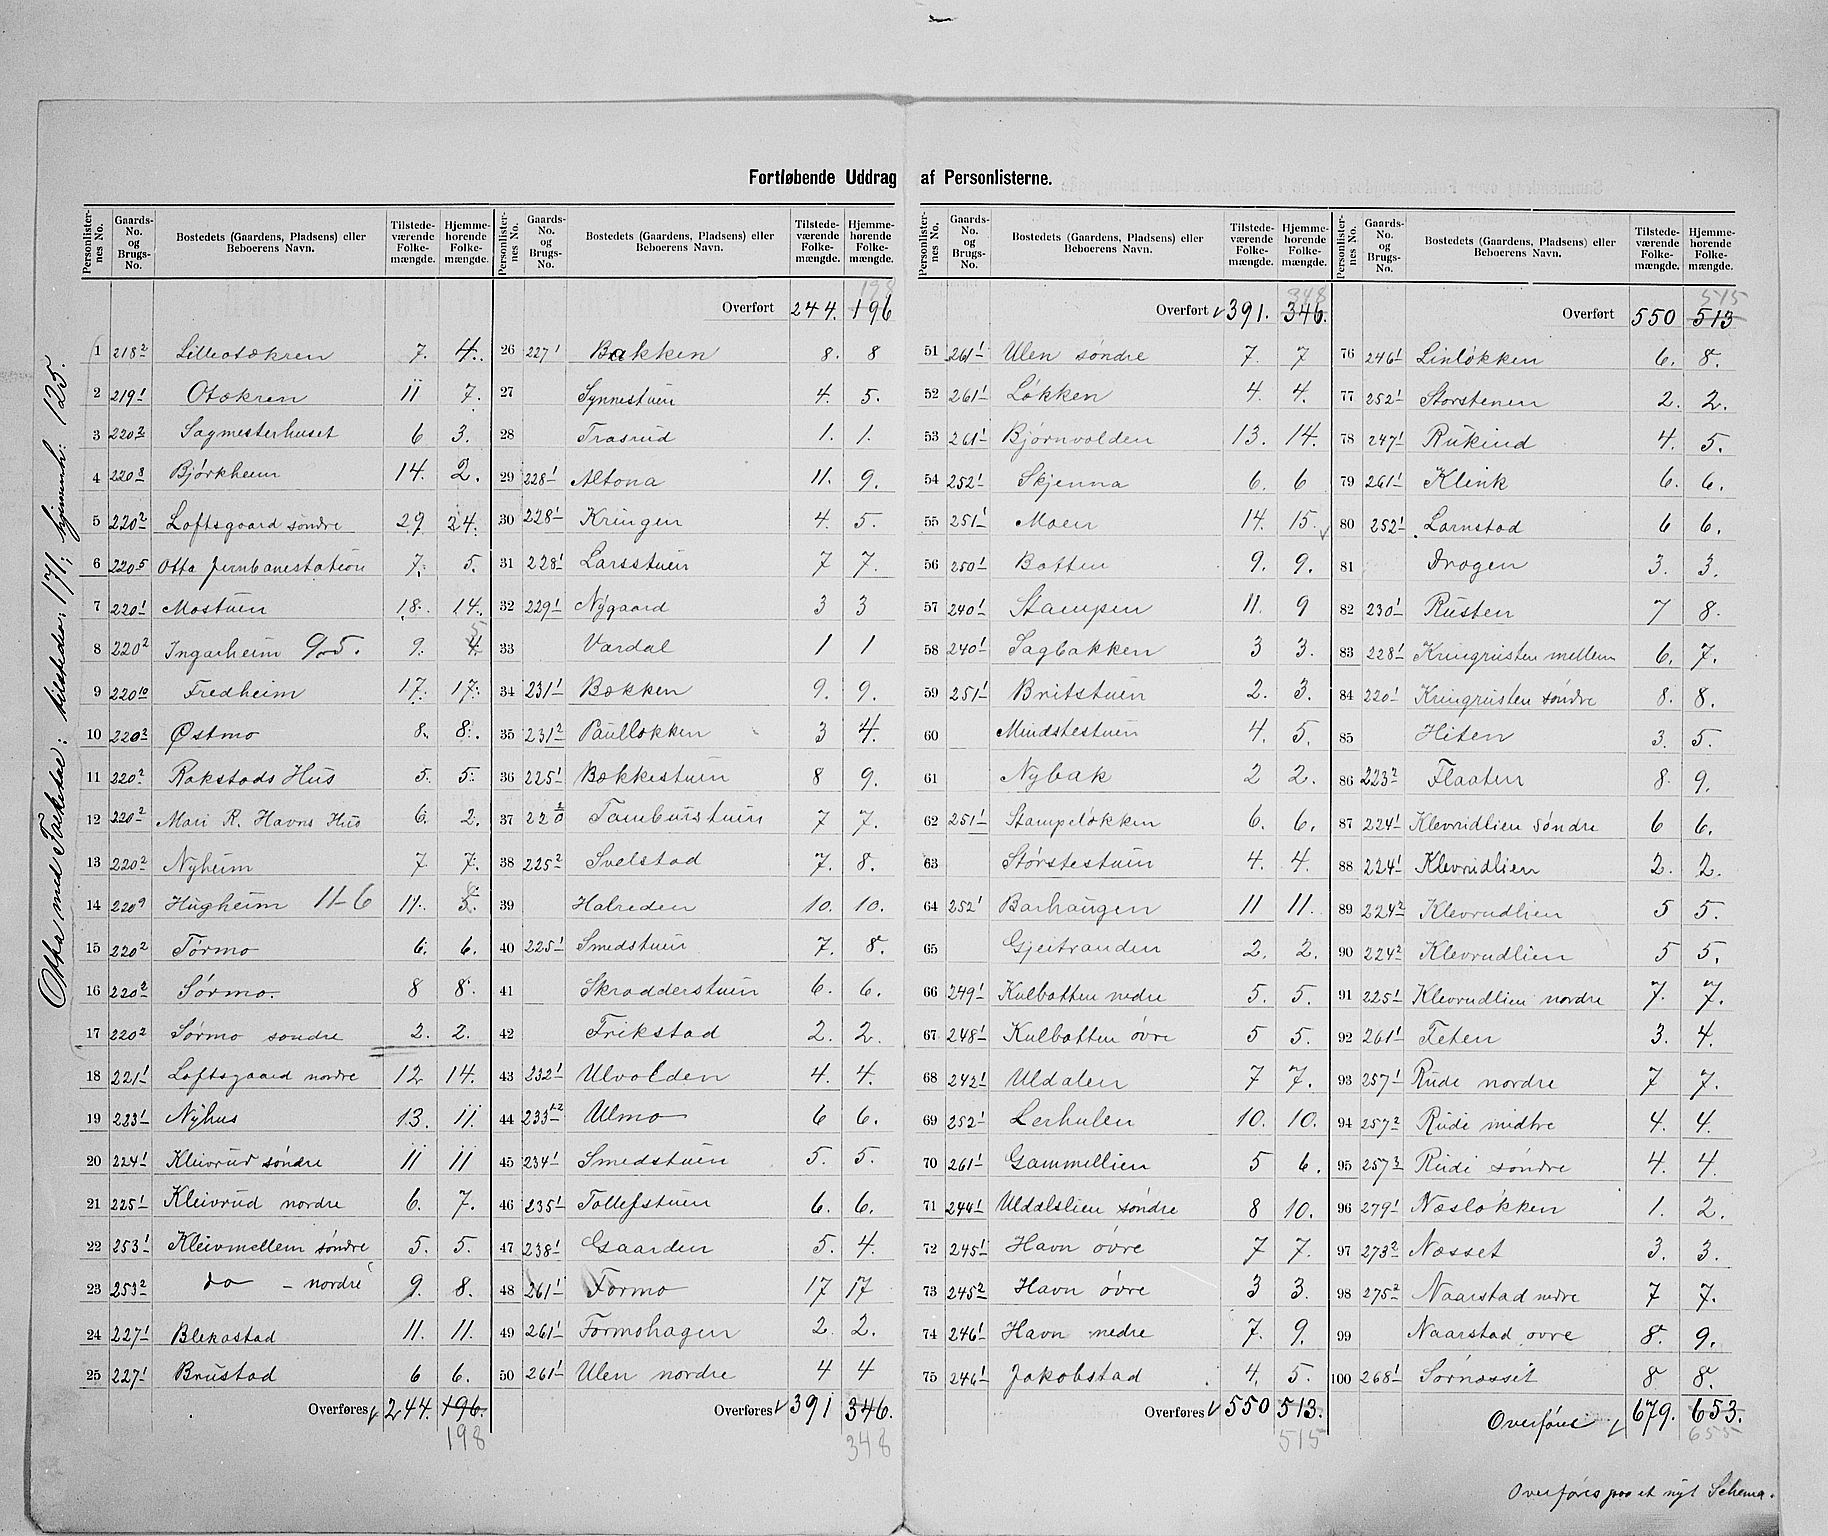 Fortløbende Uddrag af Personlisterne.
Otta med Tolkstad: tilstedev: 171; hjemmeh: 125.
Personlister-nes No. | Gaards-No. og Brugs-No. | Bostedets (Gaardens, Pladsens) eller Beboerens Navn. | Tilstede-værende Folke-mængde. | Hjemme-hørende Folke-mængde.
1 218 2 Lilleotækren 7. 4.
2 219 1 Otækren 11 7.
3 220 2 Sagmesterhuset 6 3.
4 220 8 Bjørkheim 14. 2.
5 220 2 Loftsgaard søndre 29 24.
6 220 5 Otta Jernbanestation 7. 5.
7 220 1 Mostuen 18. 14.
8 220 2 Ingarheim 9-5. 9. 4 5
9 220 10 Fredheim 17. 17.
10 220 2 Østmo 8. 8.
11 220 2 Rakstads Hus 5. 5.
12 220 2 Mari R. Havns Hus 6. 2.
13 220 2 Nyheim 7. 7.
14 220 9 Hugheim 11-6 11. 5. 6
15 220 2 Tørmo 6. 6.
16 220 2 Sørmo. 8 8.
17 220 2 Sørmo søndre 2. 2.
18 221 1 Loftsgaard nordre 12 14.
19 223 1 Nyhus 13. 11.
20 224 1 Kleivrud søndre 11 11
21 225 1 Kleivrud nordre 6. 7.
22 253 1 Kleivmellem søndre 5. 5.
23 253 2 do - nordre 9. 8.
24 227 1 Blekastad 11. 11.
25 227 1 Brustad 6 6.
Overføres 244. 196.
198
Personlister-nes No. | Gaards-No. og Brugs-No. | Bostedets (Gaardens, Pladsens) eller Beboerens Navn. | Tilstede-værende Folke-mængde. | Hjemme-hørende Folke-mængde.
198
Overført 244. 196
26 227 1 Bakken 8. 8
27 Synnestuen 4. 5.
28 Trasrud 1. 1.
29 228 1 Altona 11. 9.
30 228 1 Kringen 4. 5.
31 228 1 Larsstuen 7 7.
32 229 1 Nygaard 3 3
33 Vardal 1 1
34 231 1 Bækken 9. 9.
35 231 2 Pauløkken 3 4.
36 225 1 Bækkestuen 8 9.
37 220 Tamburstuen 7 7.
38 225 2 Svelstad 7. 8.
39 Halreden 10. 10.
40 225 1 Smedstuen 7. 8.
41 Skradderstuen 6. 6.
42 Frikstad 2. 2.
43 232 1 Ulvolden 4. 4.
44 233 1.2 Ulmo 6 6.
45 234 1 Smedstuen 5. 5.
46 235 1 Tollefstuen 6. 6.
47 238 1 Gaarden 5. 4.
48 261 1 Formo 17 17
49 261 1 Formohagen 2. 2.
50 261 1 Ulen nordre 4 4
Overføres 391 346.
348
Personlister-nes No. | Gaards-No. og Brugs-No. | Bostedets (Gaardens, Pladsens) eller Beboerens Navn. | Tilstede-værende Folke-mængde. | Hjemme-hørende Folke-mængde.
348
Overført 391. 346.
51 261 1 Ulen søndre 7. 7
52 261 1 Løkken 4. 4.
53 261 1 Bjørnvolden 13. 14.
54 252 1 Skjenna 6. 6
55 251 1 Moen 14. 15.
56 250 1 Botten 9. 9.
57 240 1 Stampen 11. 9
58 240 1 Sagbakken 3 3.
59 251 1 Britstuen 2. 3.
60 Mindstestuen 4. 5.
61 Nybak 2 2.
62 251 1 Stampeløkken 6. 6.
63 Størstestuen 4. 4.
64 252 1 Barhaugen 11 11.
65 Gjertranden 2. 2.
66 249 1 Kulbotten nedre 5. 5.
67 248 1 Kulbotten øvre 5 5.
68 242 1 Uldalen 7 7.
69 252 1 Lerhulen 10. 10.
70 261 1 Gammellien 5 6.
71 244 1 Uldalslien søndre 8 10.
72 245 1 Havn øvre 7 7.
73 245 2 Havn øvre 3 3.
74 246 1 Havn nedre 7. 9.
75 246 1 Jakobstad 4. 5.
Overføres 550 513.
515
Personlister-nes No. | Gaards-No. og Brugs-No. | Bostedets (Gaardens, Pladsens) eller Beboerens Navn. | Tilstede-værende Folke-mængde. | Hjemme-hørende Folke-mængde.
515
Overført 550 513
76 246 1 Linløkken 6. 8.
77 252 1 Storstenen 2. 2.
78 247 1 Rukind 4. 5.
79 261 1 Klink 6. 6.
80 252 1 Larnstad 6 6.
81 Dragen 3. 3.
82 230 1 Rusten 7 8.
83 228 1 Kringrusten mellem 6. 7.
84 220 1 Kringrusten søndre 8. 8.
85 Hiten 3. 5.
86 223 2 Flaaten 8. 9.
87 224 1 Klevrudlien søndre 6 6.
88 224 1 Klevrudlien 2. 2.
89 224 2 Klevrudlien 5 5.
90 224 2 Klevrudlien 5 5.
91 225 1 Klevrudlien nordre 7. 7.
92 261 1 Teten 3. 4.
93 257 1 Rudi nordre 7 7.
94 257 2 Rudi midtre 4. 4.
95 257 3 Rudi søndre 4. 4.
96 279 1 Næsløkken 1. 2.
97 273 2 Næsset 3. 3.
98 275 2 Naarstad nedre 7 7.
99 Naarstad øvre 8. 9.
100 268 1 Sørnæsset 8 8.
Overføres 679. 653.
655
Overføres paa et nyt Schema.